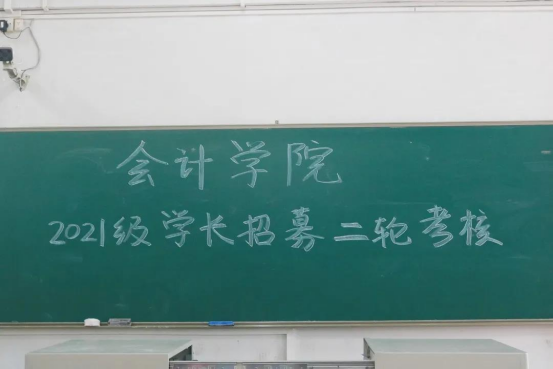 会计学院
2021级学长招募二轮考核